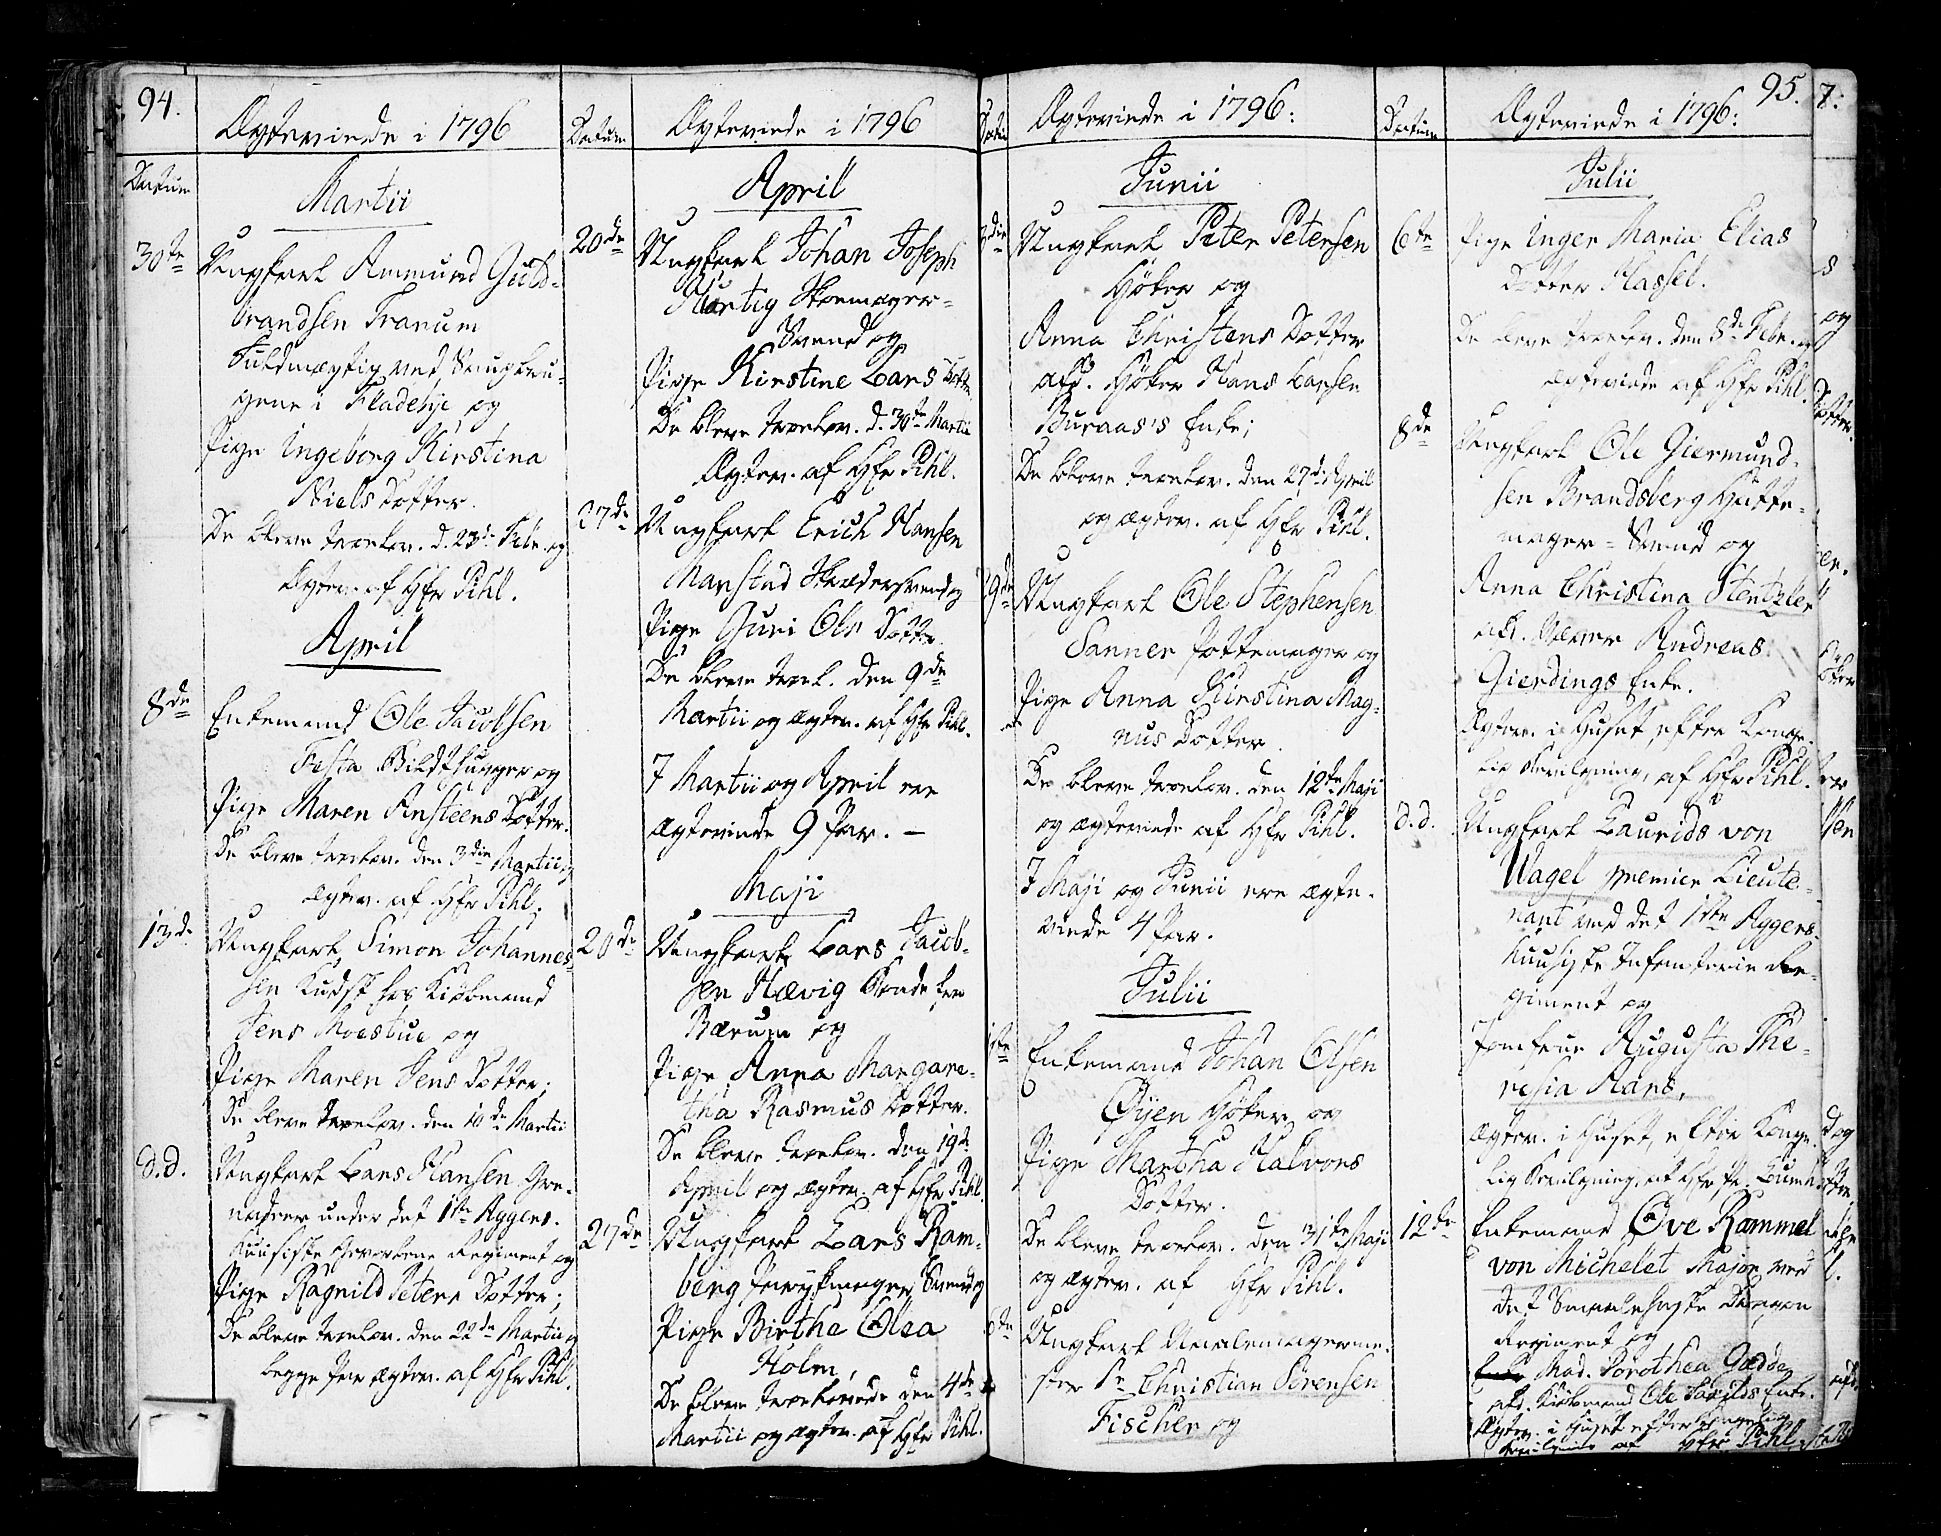 94.
Ægteviede i 1796
Datum
Martii
30te
Ungkarl Ammund Guld-
brandsen Tranum
Fuldmægtig ved
i Fladebye og
Pige Ingeborg Kirstina
Niels Dotter.
De bleve trolov. d. 23de Febr. og
Ægtev. af Hr Pihl.
April
8de
Enkemand Ole Jacobsen
Festa Bildthugger og
Pige Maren Ansteens Dotter.
De bleve trolov. den 3die Martii og
ægtev. af Hr Pihl.
13de
Ungkarl Simon Johannes-
sen Kudsk hos Kiøbmand
Jens Moestue og
Pige Maren Jens Dotter;
De bleve trolov. den 10de Martii
d.d.
Ungkarl Lars Hansen Gre-
nadeer under det 1ste Aggers-
huusiske Gevorbene Regiment og
Pige Ragnild Peters Dotter;
De bleve trolov. den 22de Martii og
begge Par ægtev. af Hr Pihl.
Datum
Ægteviede i 1796
April
20de
Ungkarl Johan Joseph
Hartig Skoemager-
Svend og
Pige Kirstine Lars Dotter
De bleve trolov. d. 30te Martii
Ægtev. af Hr Pihl.
27de
Ungkarl Erich Hansen
Manstad Skrædersvend og
Pige Guri Ols Dotter
De bleve trol. den 9de
Martii og ægtev. af Hr Pihl.
I Martii og April ere
ægteviede 9 Par. –
Maji
20de
Ungkarl Lars Jacob-
sen Hævig Bonde fra
Bærum og
Pige Anna Margare-
tha Rasmus Dotter.
De bleve trolov. den 19de
April og ægtev. af Hr Pihl.
27de
Ungkarl Lars Ram-
berg Parykmager Svend og
Pige Birthe Olea
Holm,
De bleve trolovede den 4de
Martii og ægtev. af Hr Pihl.
Ægteviede i 1796:
Junii
Ungkarl Peter Petersen
Høker og
Anna Christens Dotter
afd. Høker Hans Larsen
Buraas's Enke;
De bleve trolov. den 27de April
og ægtev. af Hr Pihl.
Ungkarl Ole Stephensen
Sanner Pottemager og
Pige Anna Kirstina Mag-
nus Dotter.
De bleve trolov. den 12te Maji
og ægteviede af Hr Pihl.
I Maji og Junii ere ægte-
viede 4 Par.
Julii
Enkemand Johan Olsen
Øyen Høker og
Pige Martha Halvors
Dotter.
De bleve trolov. den 31te Maji
og ægtev. af Hr Pihl.
Ungkarl
Sr Christian Sørensen
Fischer og
Datum
Ægteviede i 1796:
95.
Julii
6te
Pige Inger Maria Elias
Dotter Hassel.
De bleve trolov. den 8de Febr. og
ægteviede af Hr Pihl.
8de
Ungkarl Ole Giermund-
sen Brandsberg Hatte-
mager-Svend og
Anna Christina Stentzler
afd. Andreas
Gierdings Enke.
Ægtev. i Huset, efter Konge-
lig Bevilgning, af Hr Pihl.
d.d.
Ungkarl Laurids von
Nagel premier Lieute-
nant ved det 1ste Aggers-
huusiske Infanterie Re-
giment og
Jomfrue Augusta The-
resia Aars,
ægtev. i Huset, efter Konge-
lig Bevilgning, af Hr
12te
Enkemand Ove Rammel
von Michelet Major ved
det Smaalehnske Dragon
Regiment og
Mad. Dorothea Gadde
afd. Kiøbmand Ole Enke.
Ægtev. i Huset efter Kongelig
Bevilgning af Hr Pihl